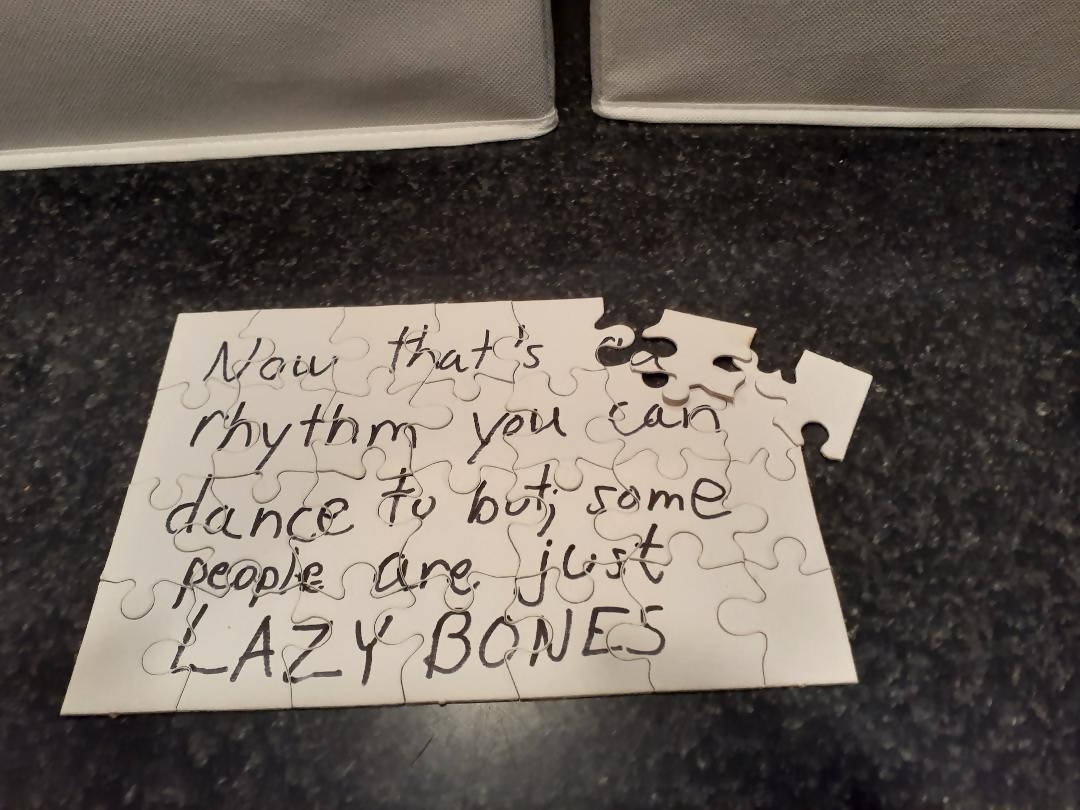 Now that's a
rhythm you can
dance to but; some
people are just
LAZY BONES